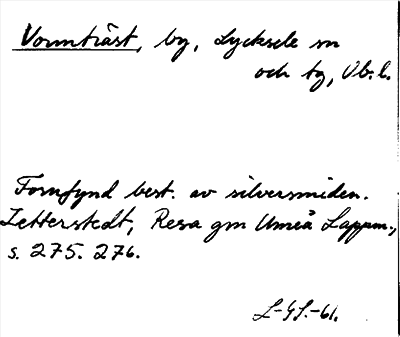 Vormträst, by, Lycksele sn
och tg, Vb. l.
Fornfynd best. av silversmiden.
Zetterstedt, Resa gm Umeå Lappm.,
s. 275. 276.
L-GS.-61.